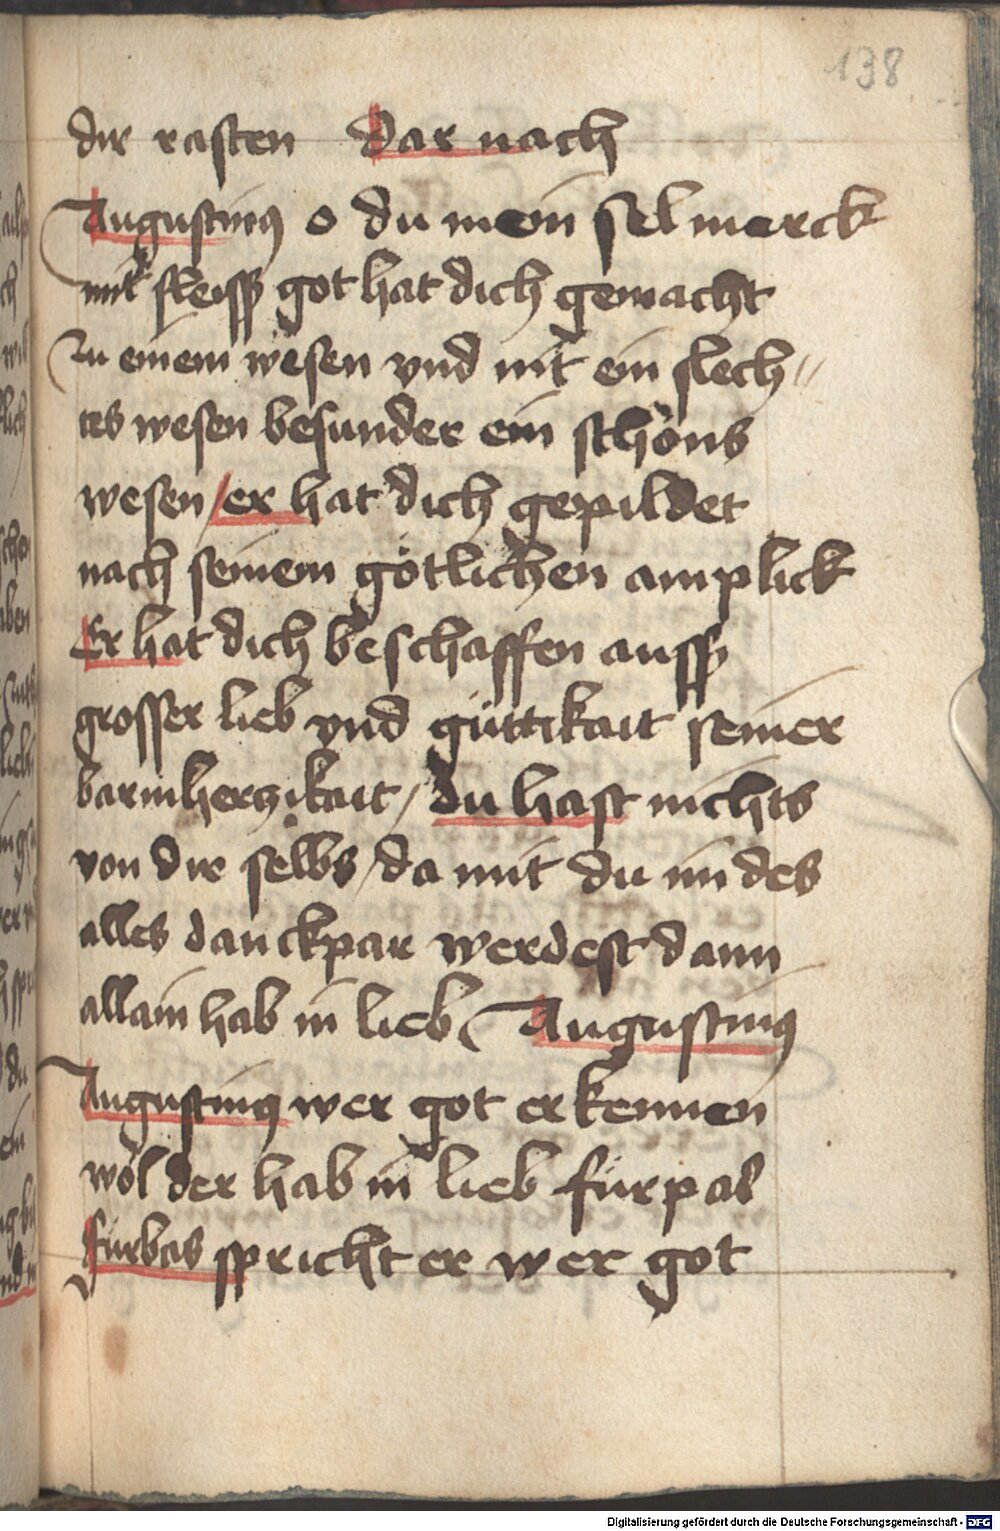 138
dir rasten Dar nach
Augustinus o du mein sel merck
mit fleiss got hat dich gemacht
zu einem wesen vnd nit ein slech//
tes wesen besunder ein schöns
wesen / er hat dich gepildet
nach seinem götlichen amplick
Er hat dich beschaffen auss
grosser lieb vnd güttikait seiner
barmherzikait / du hast nichts
von dir selbs / da mit du im des
alles danckpar werdest dann
allain hab in lieb Augustinus
Augustinus wer got erkennen
wöl der hab in lieb fürpas
fürbas spricht er wer got
Digitalisierung gefördert durch die Deutsche Forschungsgemeinschaft - DFG